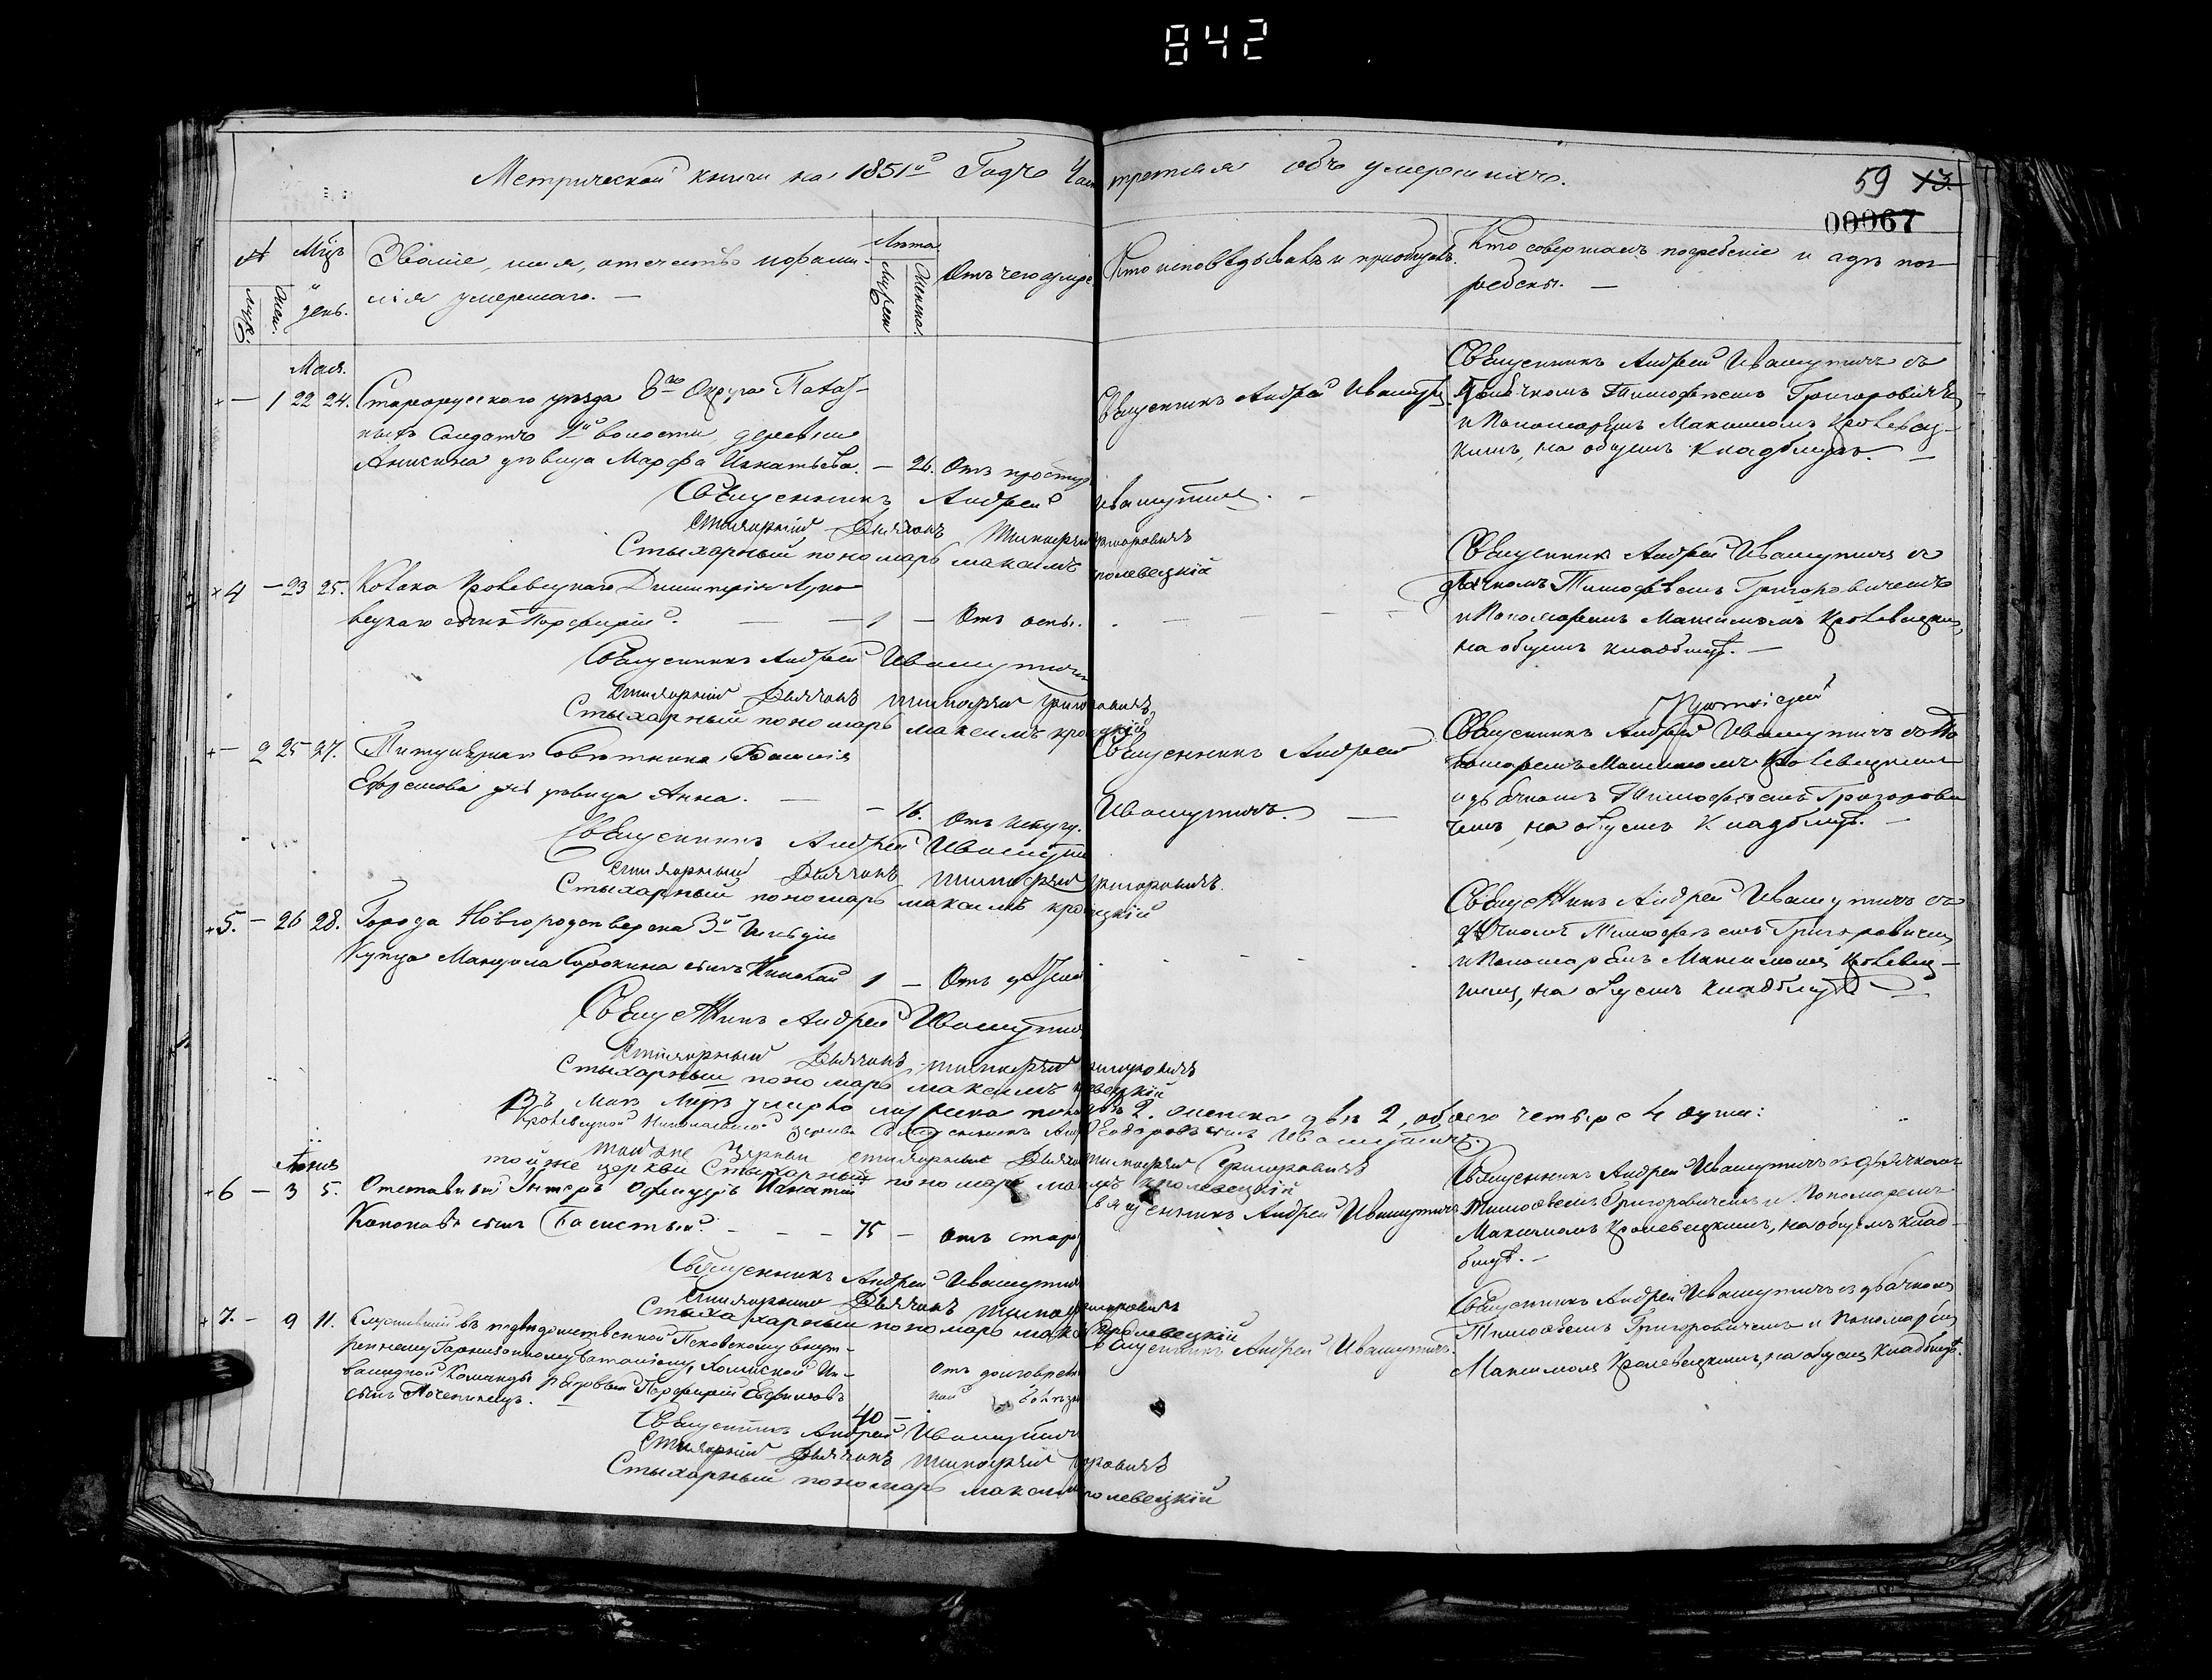 842
Метрической книги на 1851й Годъ Час третія объ умершихъ.
59 13
00067
№ Муж. Жен.
Мцъ и день.
Званіе, имя, отечество и фами-
лія умершаго. —
Лѣта Мужеска Женска
Отъ чего умре
Кто исповѣдывалъ и пріобщалъ.
Кто совершалъ погребеніе и гдѣ пог-
ребены. —
Мая.
— 1 22 24. Старорусскаго уѣзда 8го Округа Пахат-
ныхъ Солдатъ волости, деревни
Анисина дѣвица Марфа Игнатьева. — 26. Отъ простуд
Священникъ Андрей Ивашути
Священникъ Андрей Ивашутичъ съ
Дьячкомъ Тимофѣемъ Григоровичемъ
и Пономаремъ Максимомъ Кролевец-
кимъ, на общемъ кладбищѣ. —
Священникъ Андрей Ивашутичъ. —
Стихарный Дьячокъ Тимофей Григоровичъ
Стыхарный пономарь максимъ кролевецкій
4 — 23 25. Козака Кролевецкаго Димитрія Луко
вецкаго сынъ Порфирій. — — 1 — Отъ оспы.
Священникъ Андрей Ивашутичъ съ
Дьячкомъ Тимофѣемъ Григоровичемъ
и Пономаремъ Максимомъ Кролевецкимъ,
на общемъ кладбищѣ. —
Священникъ Андрей Ивашутичъ
Стихарный Дьячокъ Тимофей Григоровичъ
Стыхарный пономарь максимъ кролевецкій
— 2 25 27. Титулярнаго Совѣтника Василія
Ефремова дѣвица Анна. — — 16. Отъ испугу.
Священникъ Андрей
Ивашутичъ. —
Священникъ Андрей Ивашутичъ съ По
номаремъ Максимомъ Кролевецкимъ
и дьячкомъ Тимофѣемъ Григорови
чемъ, на общемъ кладбищѣ. —
Священникъ Андрей Ивашути
Стихарный Дьячокъ Тимофей Григоровичъ.
Стыхарный пономарь максимъ кролевецкій
5. — 26 28. Города Новгородсѣверска 3й Гильдіи
Купца Сорокина сынъ Николай 1 — Отъ
Священникъ Андрей Ивашутичъ съ
дьячкомъ Тимофѣемъ Григоровичемъ
и Пономаремъ Максимомъ Кролевец-
кимъ, на общемъ кладбищѣ —
Священникъ Андрей Ивашутич
Стихарный Дьячокъ Тимофей Григоровичъ
Стыхарный пономарь максимъ кролевецкій
Въ маѣ Мцѣ умерло мужеска пола два 2. женска двѣ 2, обоего четыре 4 души:
Кролевецкой Николаевской Церкви Священникъ Андрей Ѳедоровъ сынъ Ивашутичъ.
той же Церкви стихарный Дьячокъ Тимофей Григоровичъ
той же церкви Стыхарный пономарь максимъ кролевецкій
Іюнь
6 — 3 5. Отставной Унтеръ Офицеръ Игнатій
Кононовъ сынъ Басистый. — — — 75 — Отъ старо
Священникъ Андрей Ивашутичъ
Священникъ Андрей Ивашутичъ съ дьячкомъ
Тимофѣемъ Григоровичемъ и Пономаремъ
Максимомъ Кролевецкимъ, на общемъ клад-
бищѣ. —
Священникъ Андрей Ивашутичъ
Стихарный Дьячокъ Тимофей Григоровичъ
Стыхарный пономарь максимъ кролевецкій
7. — 9 11. Служившій въ подвѣдомственной Псковскому внут-
реннему Гарнизонному баталіону, Холмской Ин-
валидной Команды рядовый Порфирій Ефимовъ
сынъ 40 — Отъ долговремен
ной болѣзни
Священникъ Андрей Ивашутичъ.
Священникъ Андрей Ивашутичъ съ дьячкомъ
Тимофѣемъ Григоровичемъ и Пономаремъ
Максимомъ Кролевецкимъ, на общемъ кладбищѣ.
Священникъ Андрей Ивашутичъ
Стихарный Дьячокъ Тимофей Григоровичъ
Стыхарный пономарь максимъ кролевецкій